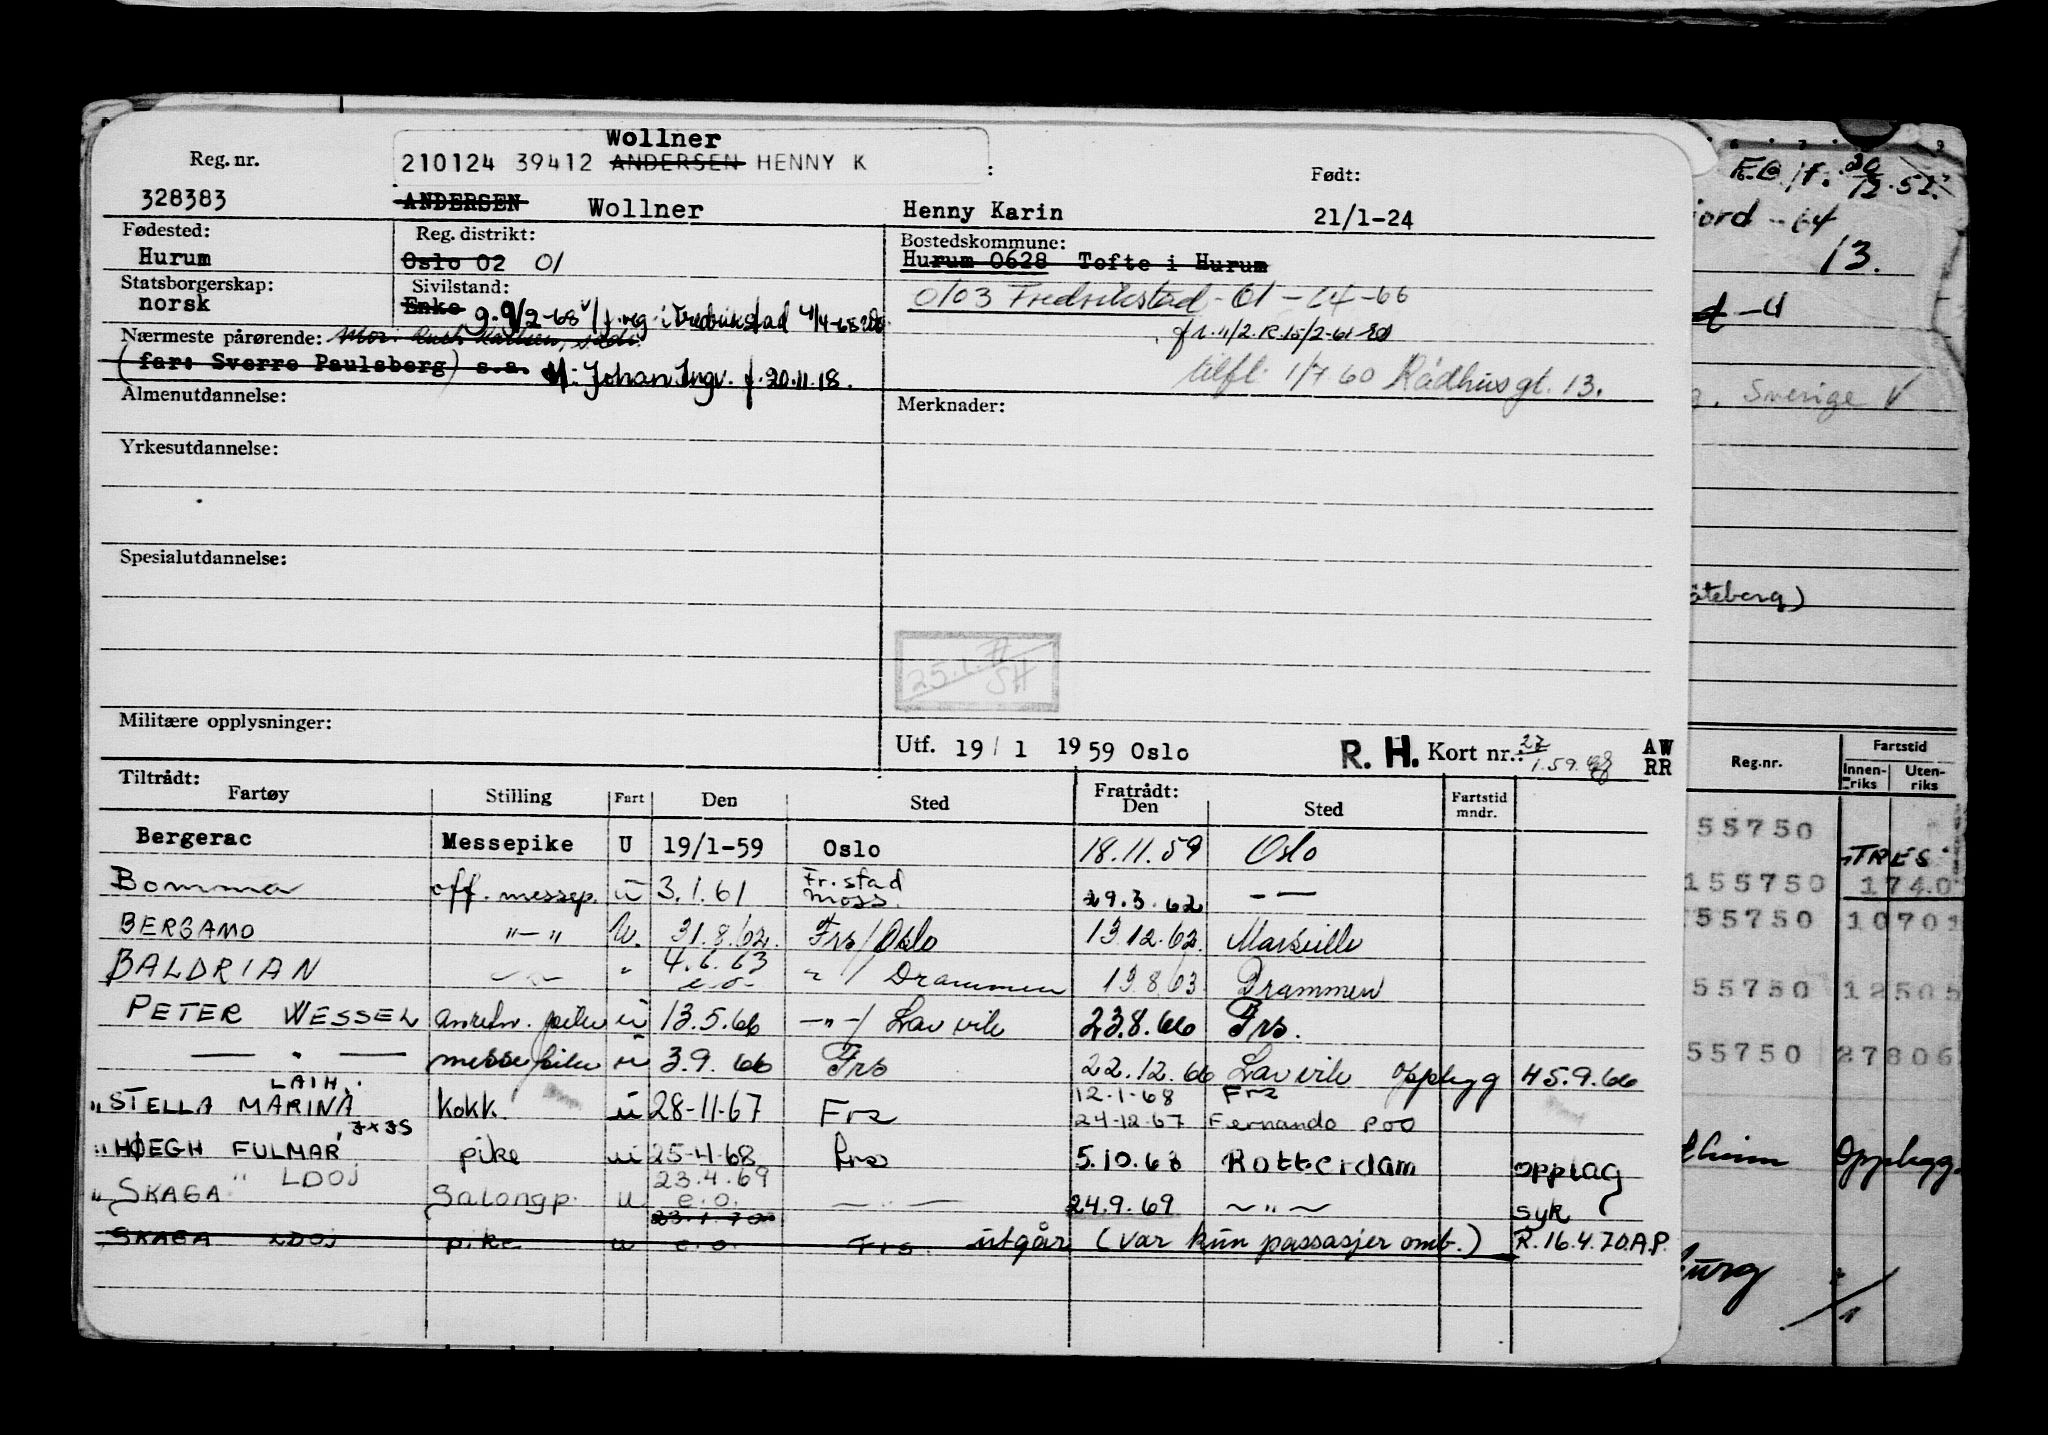 Wollner
Reg. nr. 210124 39412 ANDERSEN HENNY K : Født:
328383 ANDERSEN Wollner Henny Karin 21/1-24
Fødested: Reg. distrikt: Bostedskommune:
Hurum Oslo 02 01 Hurum 0628 Tofte i Hurum
Statsborgerskap: Sivilstand: 0103 Fredrikstad - 01 - 64 - 66
norsk Enke g. 9/2-68 v/f.reg. i Fredrikstad
Nærmeste pårørende: Mor:
(far: Sverre Paulsberg) s.a. M: Johan Ingv. f. 20.11.18.
tilfl. 1/7 60 Rådhusgt. 13.
Almenutdannelse: Merknader:
Yrkesutdannelse:
Spesialutdannelse:
25.1.
SH
Militære opplysninger:
Utf. 19/1 1959 Oslo R. H. Kort nr.: AW
RR
Tiltrådt: Fratrådt:
Fartøy Stilling Fart Den Sted Den Sted Fartstid mndr.
Bergerac Messepike U 19/1-59 Oslo 18.11.59 Oslo
Bomma off. messep. u 3.1.61 Fr.stad Moss. 29.3.62 — —
BERGAMO "—" U. 31.8.62. Frs/Oslo 13.12.62. Marseille
BALDRIAN —"— " 4.6.63 e.o. " / Drammen 19.8.63 Drammen
PETER WESSEL u 13.5.66 —"—/ Larvik 23.8.66 Frs.
— " — u 3.9.66 Frs 22.12.66 Larvik Oppbygg H5.9.66
LAIH. 12.1.68 Frs
" STELLA MARINA Kokk. u 28-11-67 Frs 24-12-67 Fernando Poo
JXJS
" HØEGH FULMAR pike u 25-4-68 Frs 5.10.68 Rotterdam opplag
23.4.69
" SKAGA " LDOJ Salongp. u e.o. — " — 24.9.69 ~ " ~ syk
23.1.70
SKAGA LDOJ pike u e.o. Frs. utgår (var kun passasjer omb.) R.16.4.70.A.P.
jord - 64
13.
Sverige V
Reg.nr. Fartstid
Innenriks Utenriks
55750
TRES
155750 1740
55750 10701
55750 12505
55750 27806
Oppbygg.